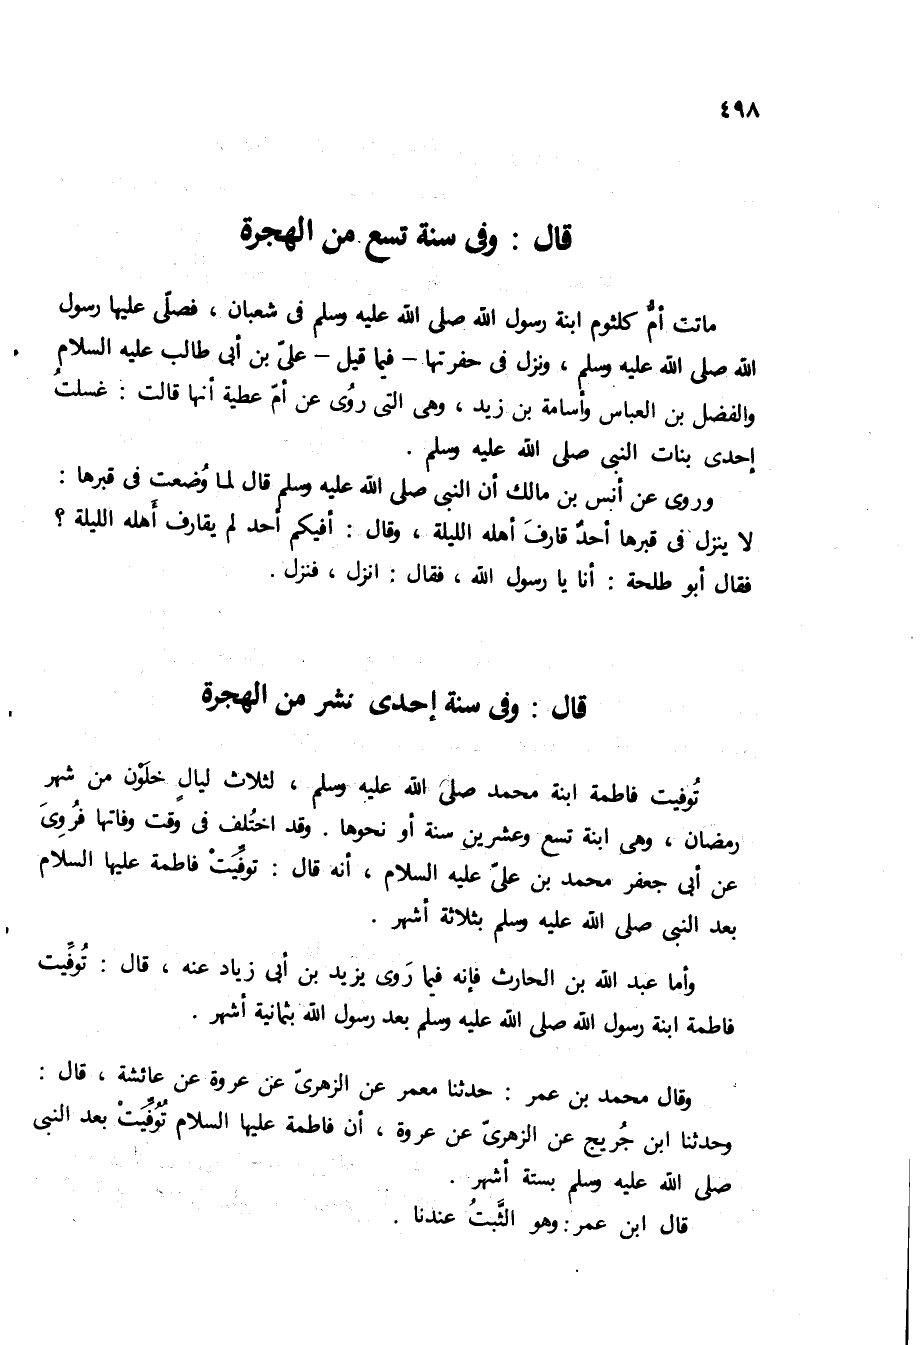 ٤٩٨
قال : وفى سنة تسع من الهجرة
ماتت أمُّ كلثوم ابنة رسول الله صلى الله عليه وسلم فى شعبان ، فصلّى عليها رسول
الله صلى الله عليه وسلم ، ونزل فى حفرتها – فيما قيل – علىّ بن أبى طالب عليه السلام
والفضل بن العباس وأسامة بن زيد ، وهى التى روُى عن أمّ عطية أنها قالت : غسلتُ
إحدى بنات النبى صلى الله عليه وسلم .
وروى عن أنس بن مالك أن النبى صلى الله عليه وسلم قال لما وُضعت فى قبرها :
لا ينزل فى قبرها أحدٌ قارفَ أهله الليلة ، وقال : أفيكم أحد لم يقارف أَهله الليلة ؟
فقال أبو طلحة : أنا يا رسول الله ، فقال : انزل ، فنزل .
قال : وفى سنة إحدى نشر من الهجرة
تُوفيت فاطمة ابنة محمد صلى الله عليه وسلم ، لثلاث ليالٍ خلَوْن من شهر
رمضان ، وهى ابنة تسع وعشرين سنة أو نحوها . وقد اختُلف فى وقت وفاتها فرُوِىَ
عن أبى جعفر محمد بن علىّ عليه السلام ، أنه قال : توفِّيَتْ فاطمة عليها السلام
بعد النبى صلى الله عليه وسلم بثلاثة أشهر .
وأما عبد الله بن الحارث فإنه فيما رَوى يزيد بن أبى زياد عنه ، قال : تُوفِّيت
فاطمة ابنة رسول الله صلى الله عليه وسلم بعد رسول الله بثمانية أشهر .
وقال محمد بن عمر : حدثنا معمر عن الزهرىّ عن عروة عن عائشة ، قال :
وحدثنا ابن جُريج عن الزهرىّ عن عروة ، أن فاطمة عليها السلام تُوُفِّيَتْ بعد النبى
صلى الله عليه وسلم بستة أشهر .
قال ابن عمر : وهو الثَّبتُ عندنا .